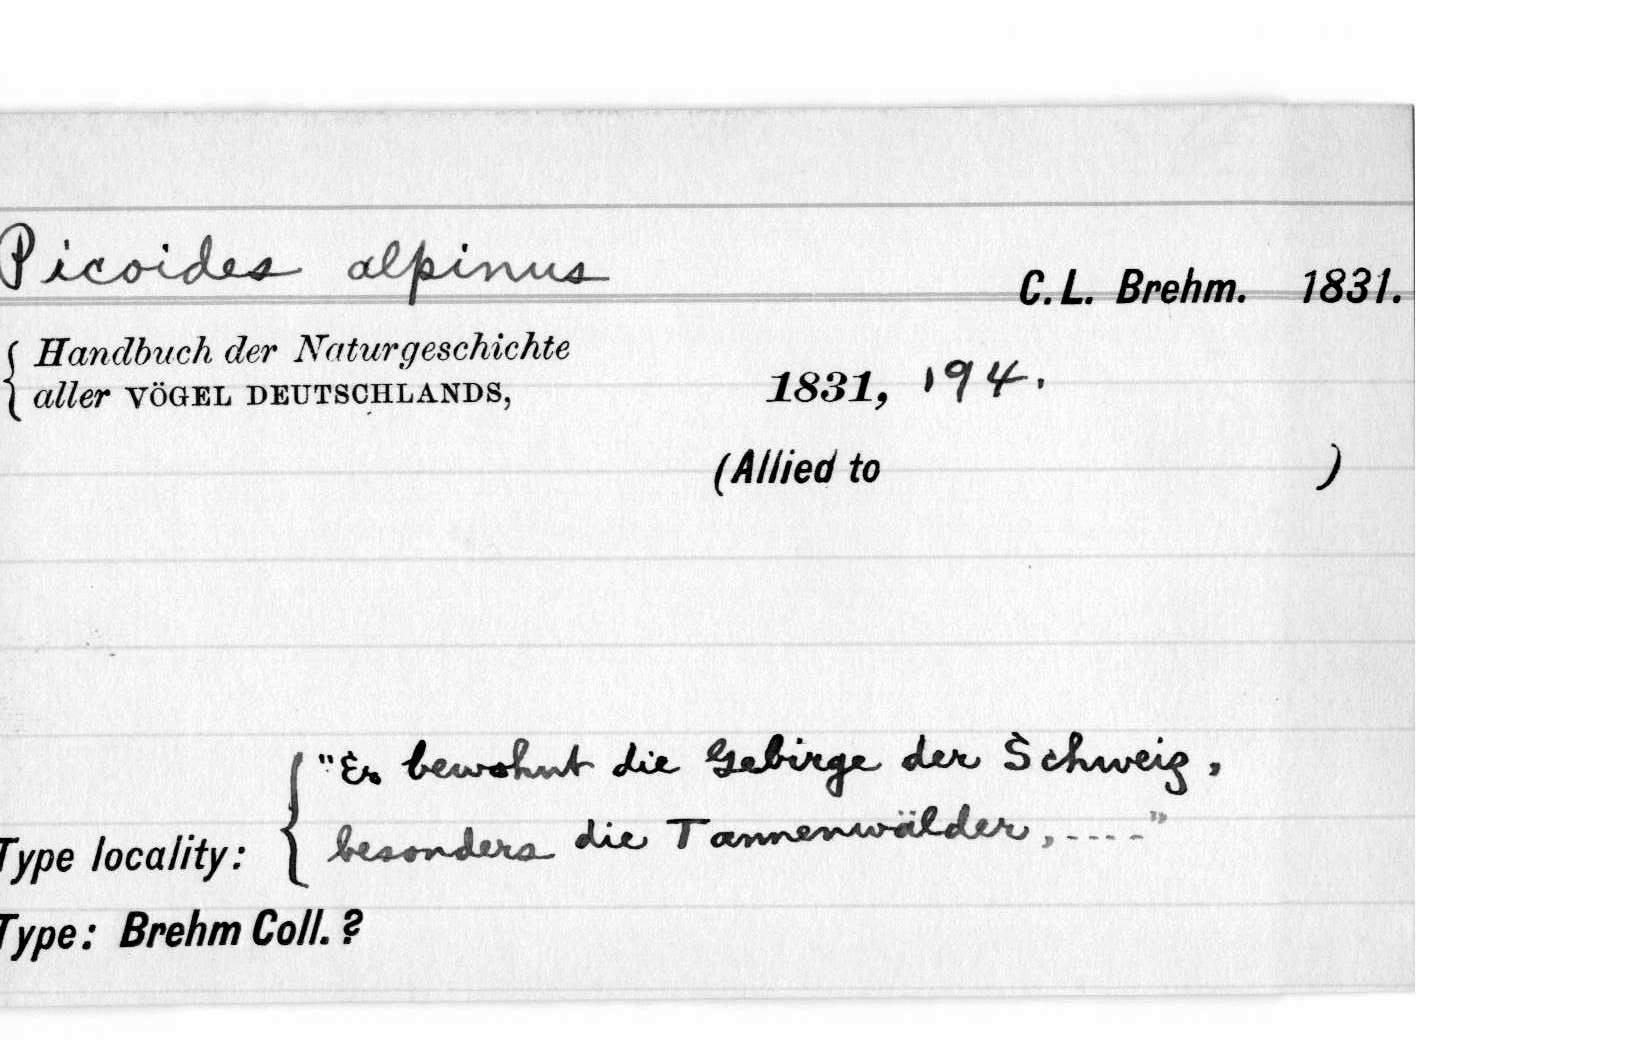 Picoides alpinus
C. L. Brehm. 1831.
Handbuch der Naturgeschichte
aller VÖGEL DEUTSCHLANDS,
1831, 194.
(Allied to )
"Er bewohnt die Gebirge der Schweiz,
besonders die Tannenwälder, ----"
Type locality:
Type: Brehm Coll. ?